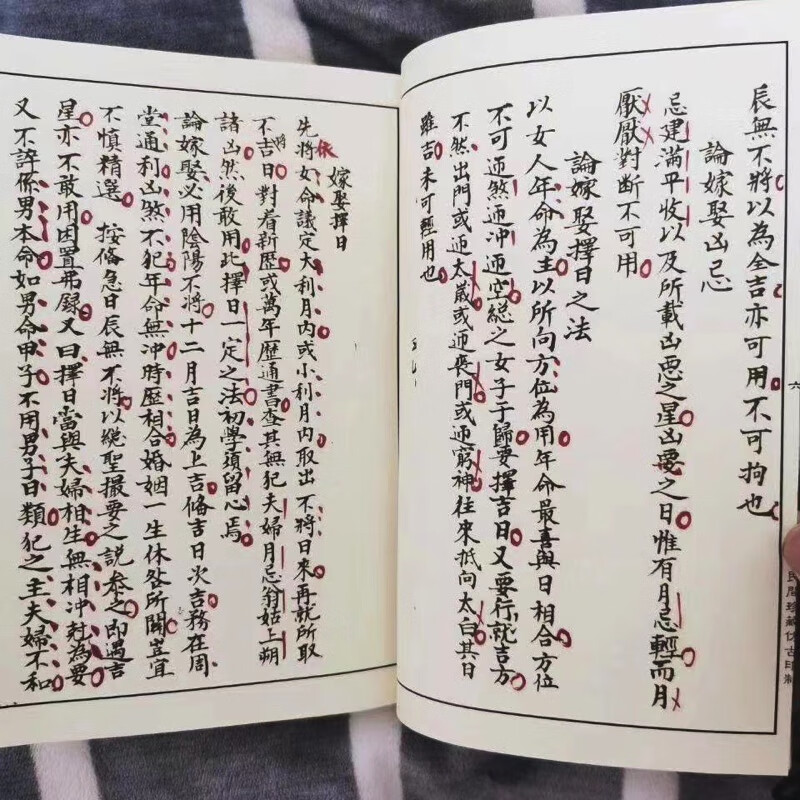 辰無不將以為全吉亦可用不可拘也
論嫁娶凶忌
忌建滿平收以及所載凶惡之星凶惡之日惟有月忌輕而月
厭厭對斷不可用
論嫁娶擇日之法
以女人年命為主以所向方位為用年命最喜與日相合方位
不可迊煞迊冲迊空總之女子于歸要擇吉日又要行就吉方
不然出門或迊太歲或迊喪門或迊窮神往來抵向太白其日
雖吉未可輕用也
六
民間珍藏仿古印制
嫁娶擇日
先將女命議定大利月內或小利月內取出不將日來再就所取
依
不將吉日對看新歷或萬年歷通書查其無犯夫婦月忌翁姑上朔
諸凶然後敢用此擇日一定之法初學須留心焉
論嫁娶必用陰陽不將十二月吉日為上吉俻吉日次吉務在周
堂通利凶煞不犯年命無冲時歷相合婚姻一生休咎所關豈宜
不慎精選 按俻急日辰無不將以総聖撮要之說參之即遇吉
星亦不敢用因置弗録又曰擇日當與夫婦相生無相冲尅為要
又不許係男本命如男命甲子不用男子日類犯之主夫婦不和